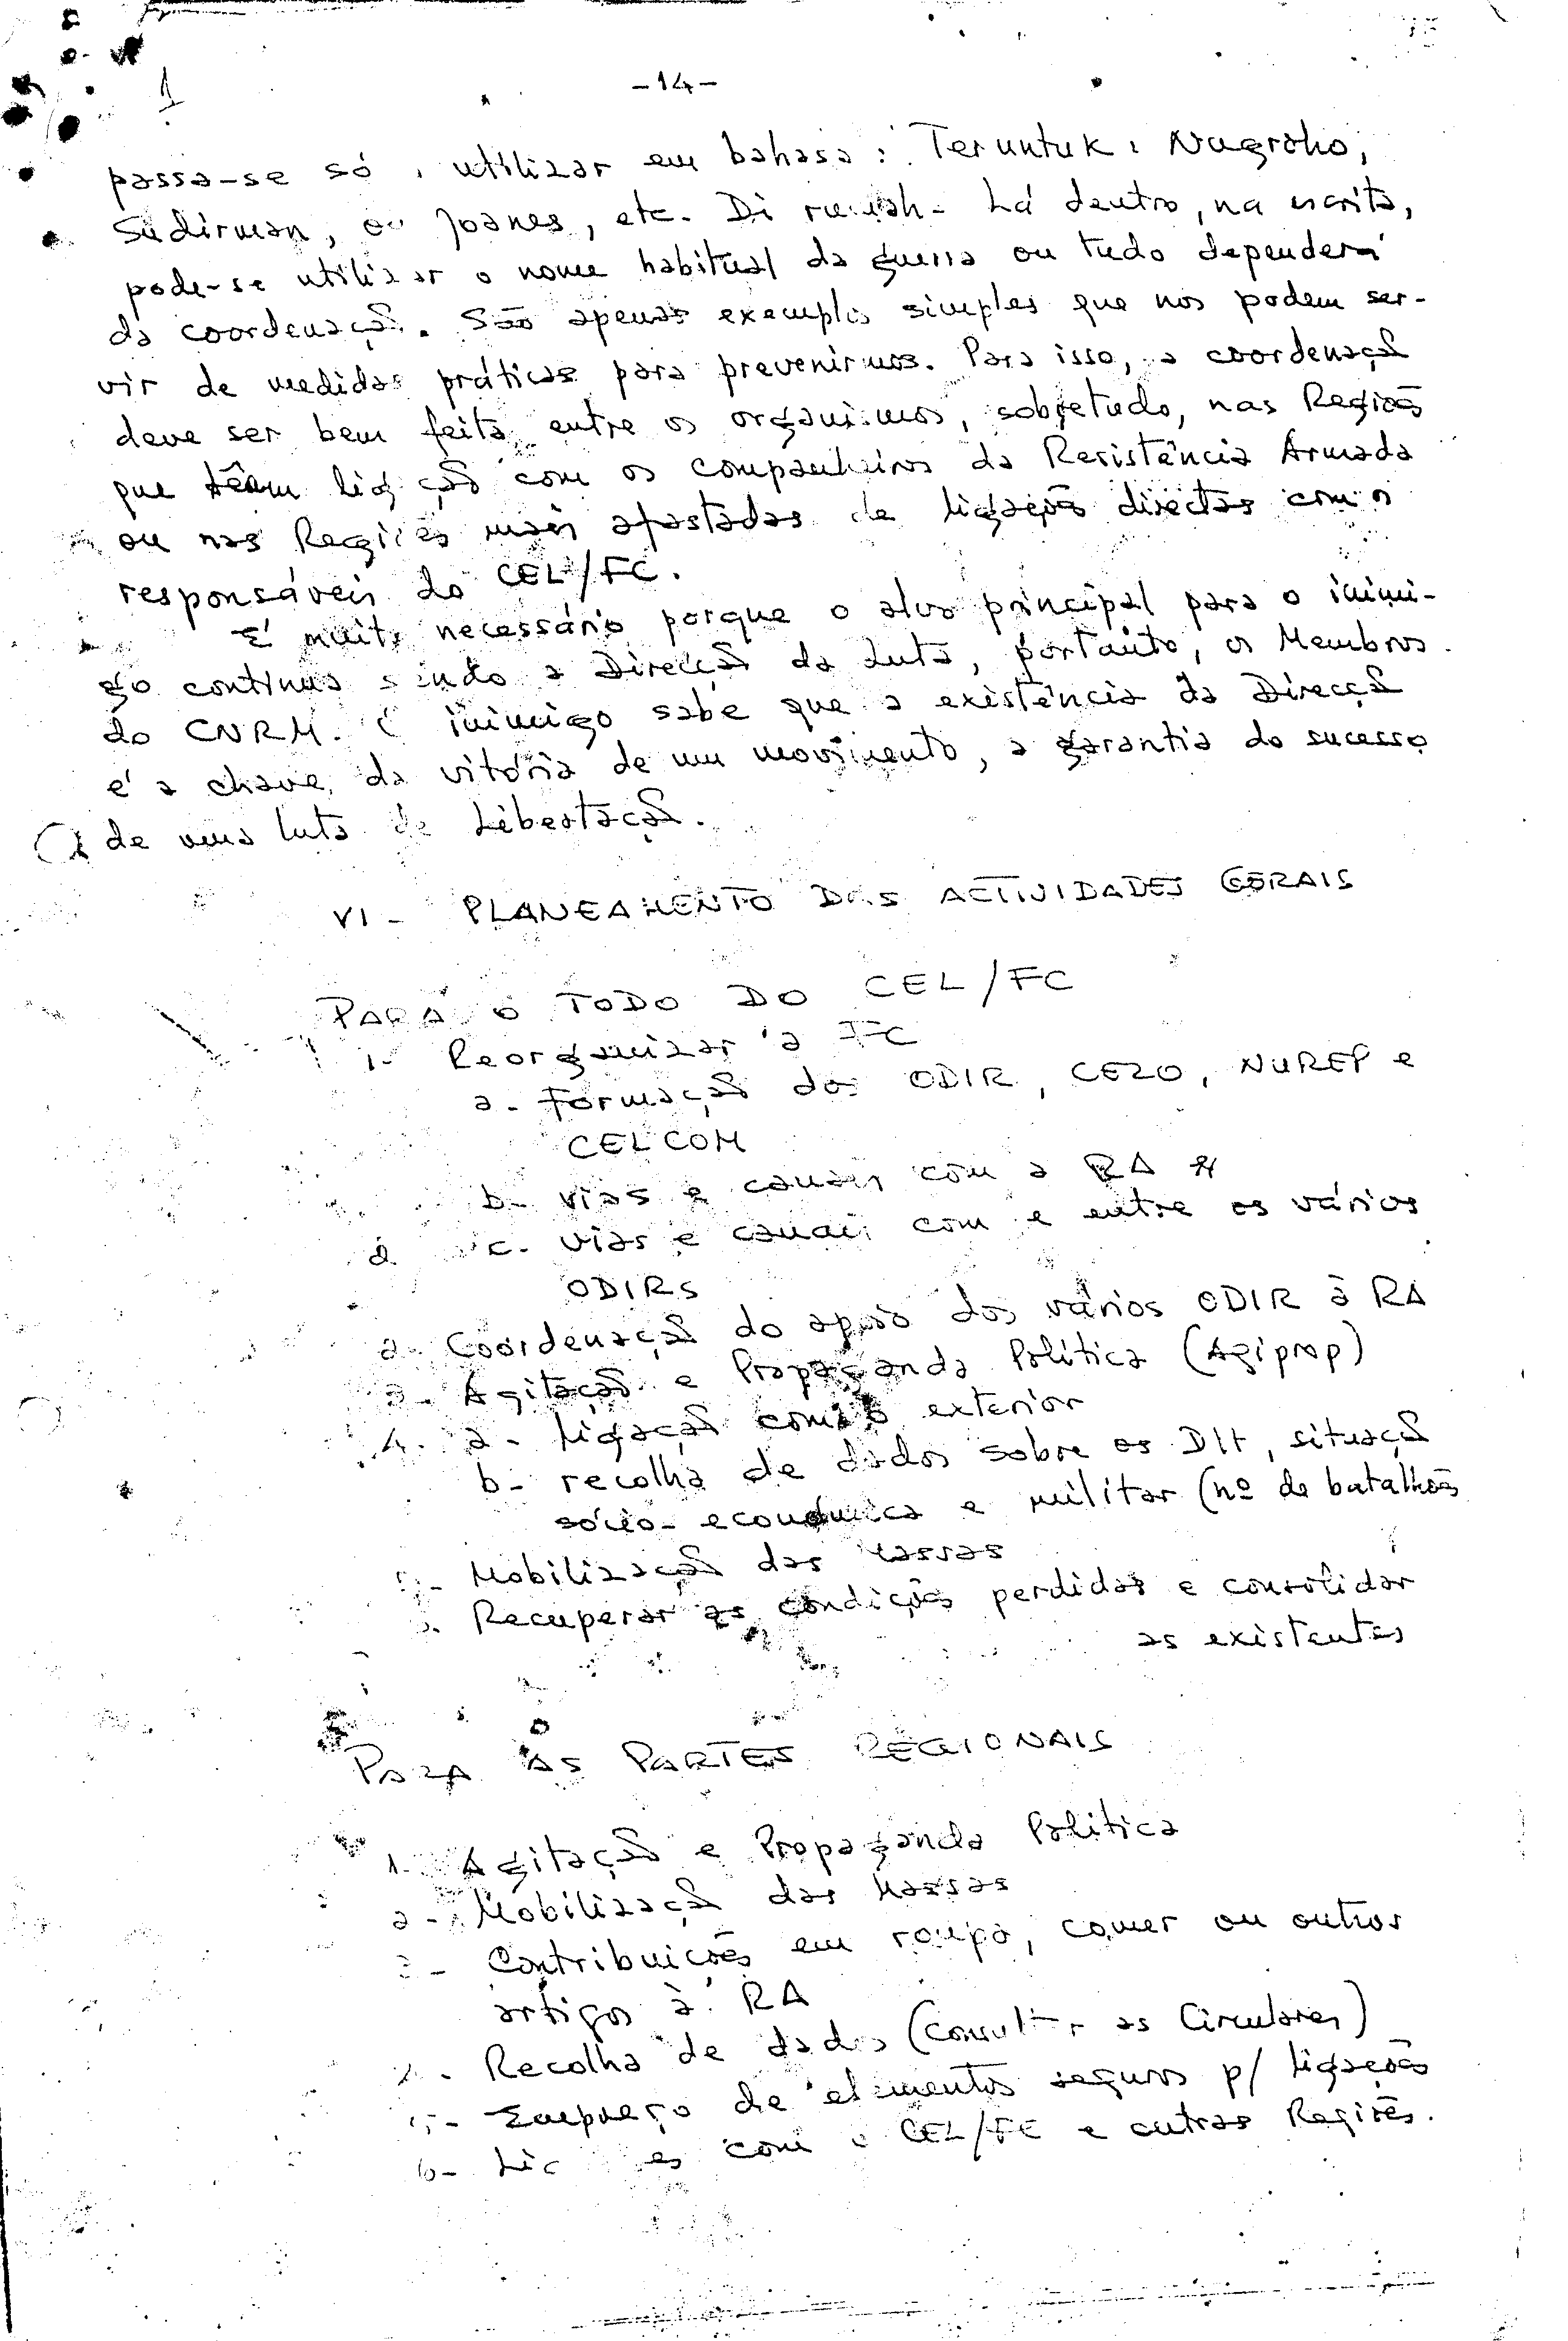 -14-
passa-se só, utilizar em bahasa: Teruntuk: Nugroho,
Sudirman, ou Joanes, etc. Di rumah - Lá dentro, na escrita,
pode-se utilizar o nome habitual da guerra ou tudo dependerá
da coordenação. São apenas exemplos simples que nos podem ser-
vir de medidas práticas para prevenirmos. Para isso, a coordenação
deve ser bem feita entre os organismos, sobretudo, nas Regiões
que têm ligação com os companheiros da Resistência Armada
ou nas Regiões mais afastadas de ligações directas com os
responsáveis do CEL/FC.
É muito necessário porque o alvo principal para o inimi-
go continua sendo a Direcção da Luta, portanto, os Membros
do CNRM. O inimigo sabe que a existência da Direcção
é a chave da vitória de um movimento, a garantia do sucesso
de uma luta de Libertação.
VI - PLANEAMENTO DAS ACTIVIDADES GERAIS
PARA O TODO DO CEL/FC
1- Reorganizar a FC
a- Formação dos ODIR, CEZO, NUREP e
CELCOM
b- vias e canais com a RA
c- vias e canais com e entre os vários
ODIRS
2- Coordenação do apoio dos vários ODIR à RA
3- Agitação e Propaganda Política (Agiprop)
4- a- Ligação com o exterior
b- recolha de dados sobre os DH, situação
sócio-económica e militar (nº de batalhões
5- Mobilização das Massas
6. Recuperar as condições perdidas e consolidar
as existentes
PARA AS PARTES REGIONAIS
1- Agitação e Propaganda Política
2- Mobilização das Massas
3- Contribuições em roupa, comer ou outros
artigos à RA
4- Recolha de dados (consultar as Circulares)
5- Emprego de elementos seguros p/ ligações
6- Ligações com o CEL/FC e outras Regiões.